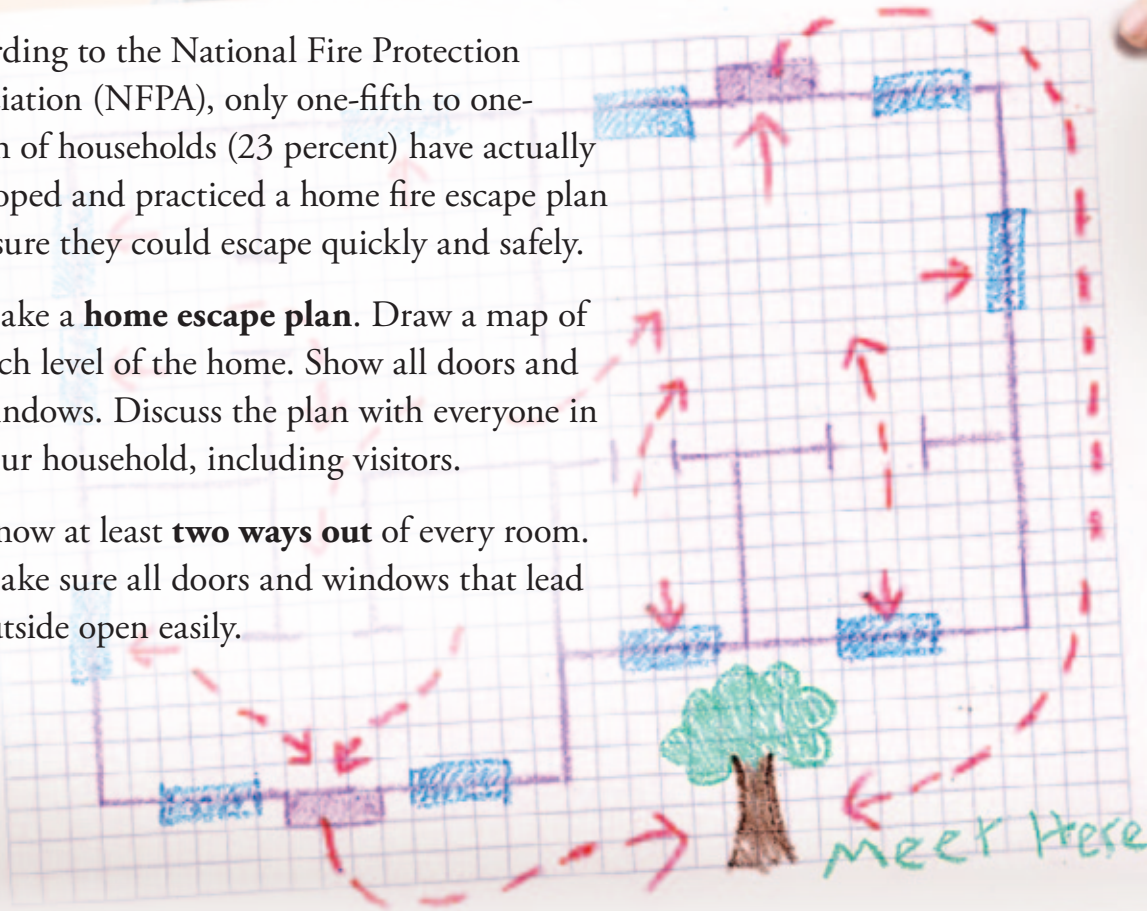 rding to the National Fire Protection
iation (NFPA), only one-fifth to one-
n of households (23 percent) have actually
oped and practiced a home fire escape plan
sure they could escape quickly and safely.
ake a home escape plan. Draw a map of
ch level of the home. Show all doors and
ndows. Discuss the plan with everyone in
ur household, including visitors.
now at least two ways out of every room.
ake sure all doors and windows that lead
utside open easily.
Meet Here